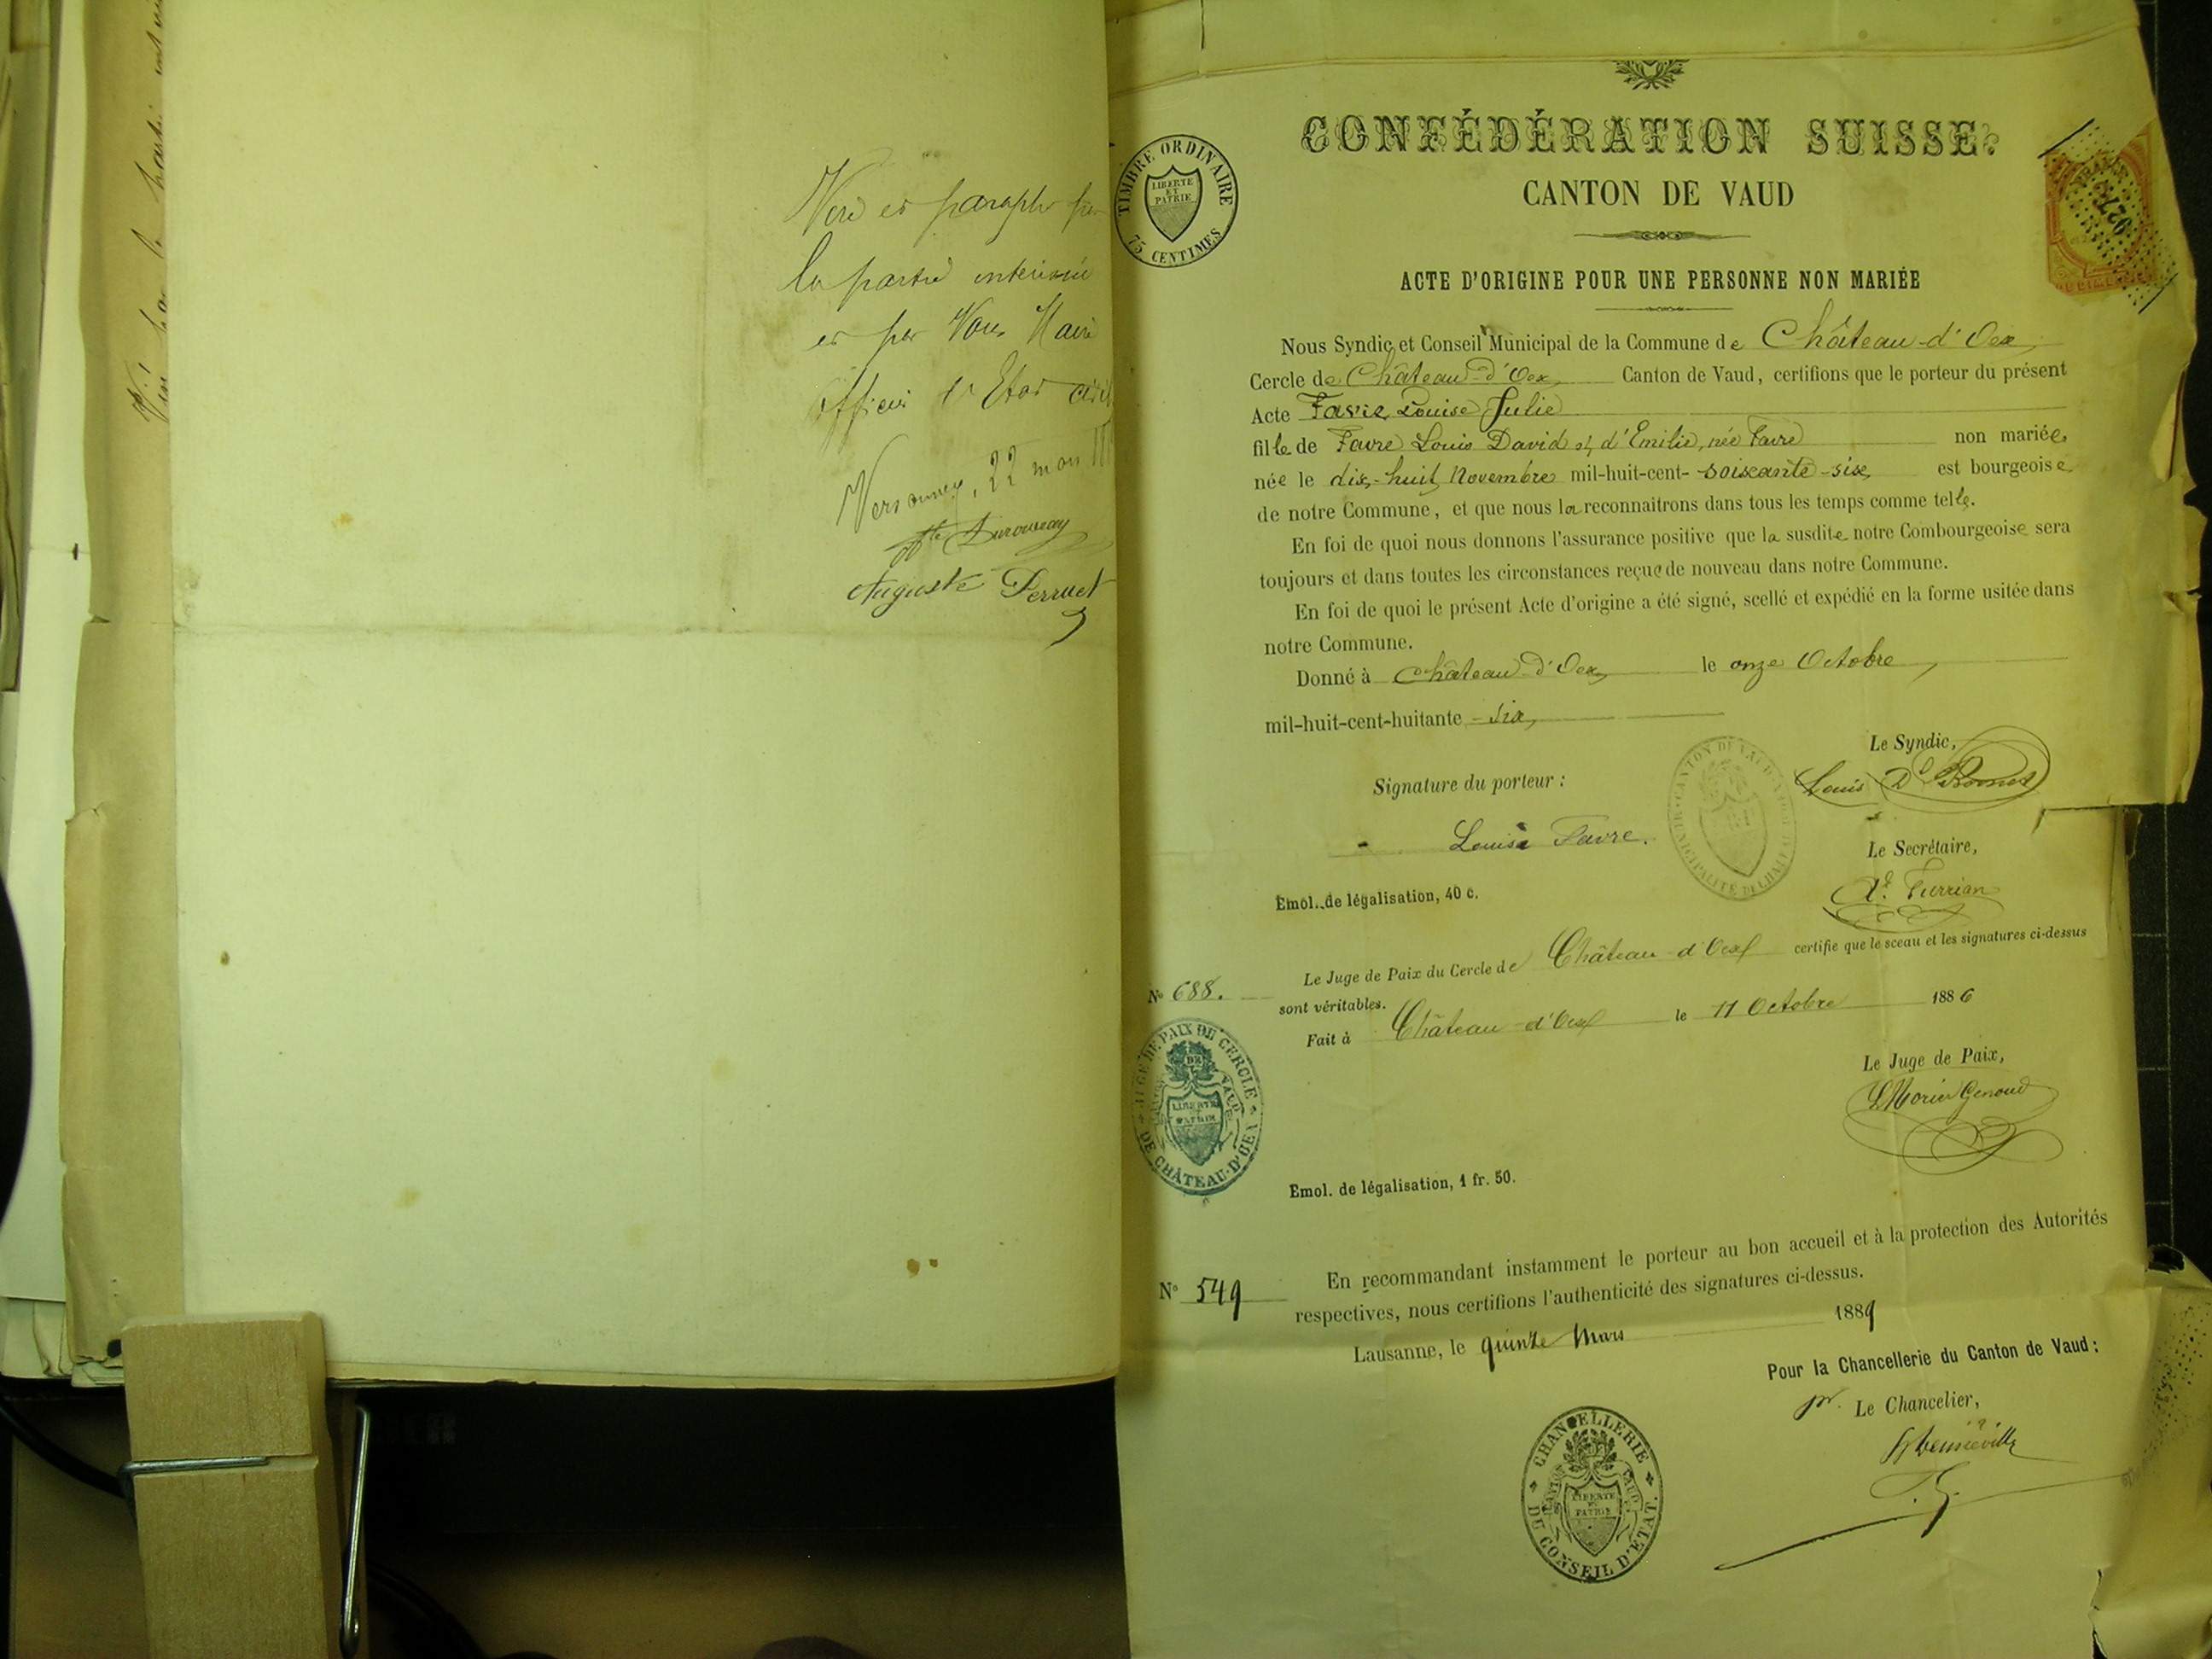 Ne varietur et paraphé par
la partie intéressée
et par Nous Maire
officier de l'Etat civil
Versonnex, 22 mars
Auguste Perruet
CONFÉDÉRATION SUISSE.
CANTON DE VAUD
TIMBRE ORDINAIRE
LIBERTE ET PATRIE
75 CENTIMES
ACTE D'ORIGINE POUR UNE PERSONNE NON MARIÉE
Nous Syndic et Conseil Municipal de la Commune de Château-d'Oex,
Cercle de Château-d'Oex, Canton de Vaud, certifions que le porteur du présent
Acte Favre Louise Julie
fille de Favre Louis David et d'Emilie, née Favre non mariée,
née le dix-huit Novembre mil-huit-cent- soixante-six, est bourgeoise
de notre Commune, et que nous la reconnaitrons dans tous les temps comme telle.
En foi de quoi nous donnons l'assurance positive que la susdite notre Combourgeoise sera
toujours et dans toutes les circonstances reçue de nouveau dans notre Commune.
En foi de quoi le présent Acte d'origine a été signé, scellé et expédié en la forme usitée dans
notre Commune.
Donné à Château-d'Oex, le onze Octobre,
mil-huit-cent-huitante-six,
Le Syndic,
Signature du porteur :
Louise Favre.
Le Secrétaire,
Emol. de légalisation, 40 c.
Le Juge de Paix du Cercle de Château-d'Oex certifie que le sceau et les signatures ci-dessus
No 688.
sont véritables.
Fait à Château-d'Oex le 11 Octobre 1886
JUGE DE PAIX DU CERCLE DE CHÂTEAU-D'OEX
CANTON DE VAUD
LIBERTE ET PATRIE
Le Juge de Paix,
Morier Genoud
Emol. de légalisation, 1 fr. 50.
En recommandant instamment le porteur au bon accueil et à la protection des Autorités
No 549
respectives, nous certifions l'authenticité des signatures ci-dessus.
Lausanne, le quinze Mars 1889
Pour la Chancellerie du Canton de Vaud :
pr. Le Chancelier,
CHANCELLERIE DU CONSEIL D'ETAT.
CANTON DE VAUD
LIBERTE ET PATRIE